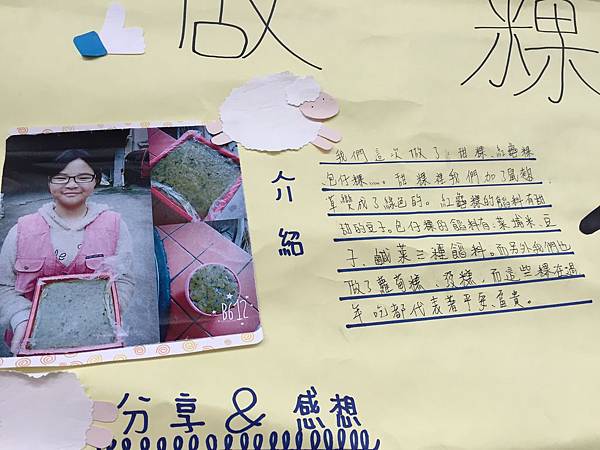 做 粿
介紹
我們這次做了:甜粿、紅龜粿
包仔粿……。甜粿裡我們加了鼠麴,
真變成了綠色的。紅龜粿的餡料有甜
甜的豆子。包仔粿的餡料有:菜埔米、豆
子、鹹菜三種餡料。而另外我們也
做了蘿蔔糕、發糕,而這些粿在過
年吃都代表著平安、富貴。
B612
分享 & 感想